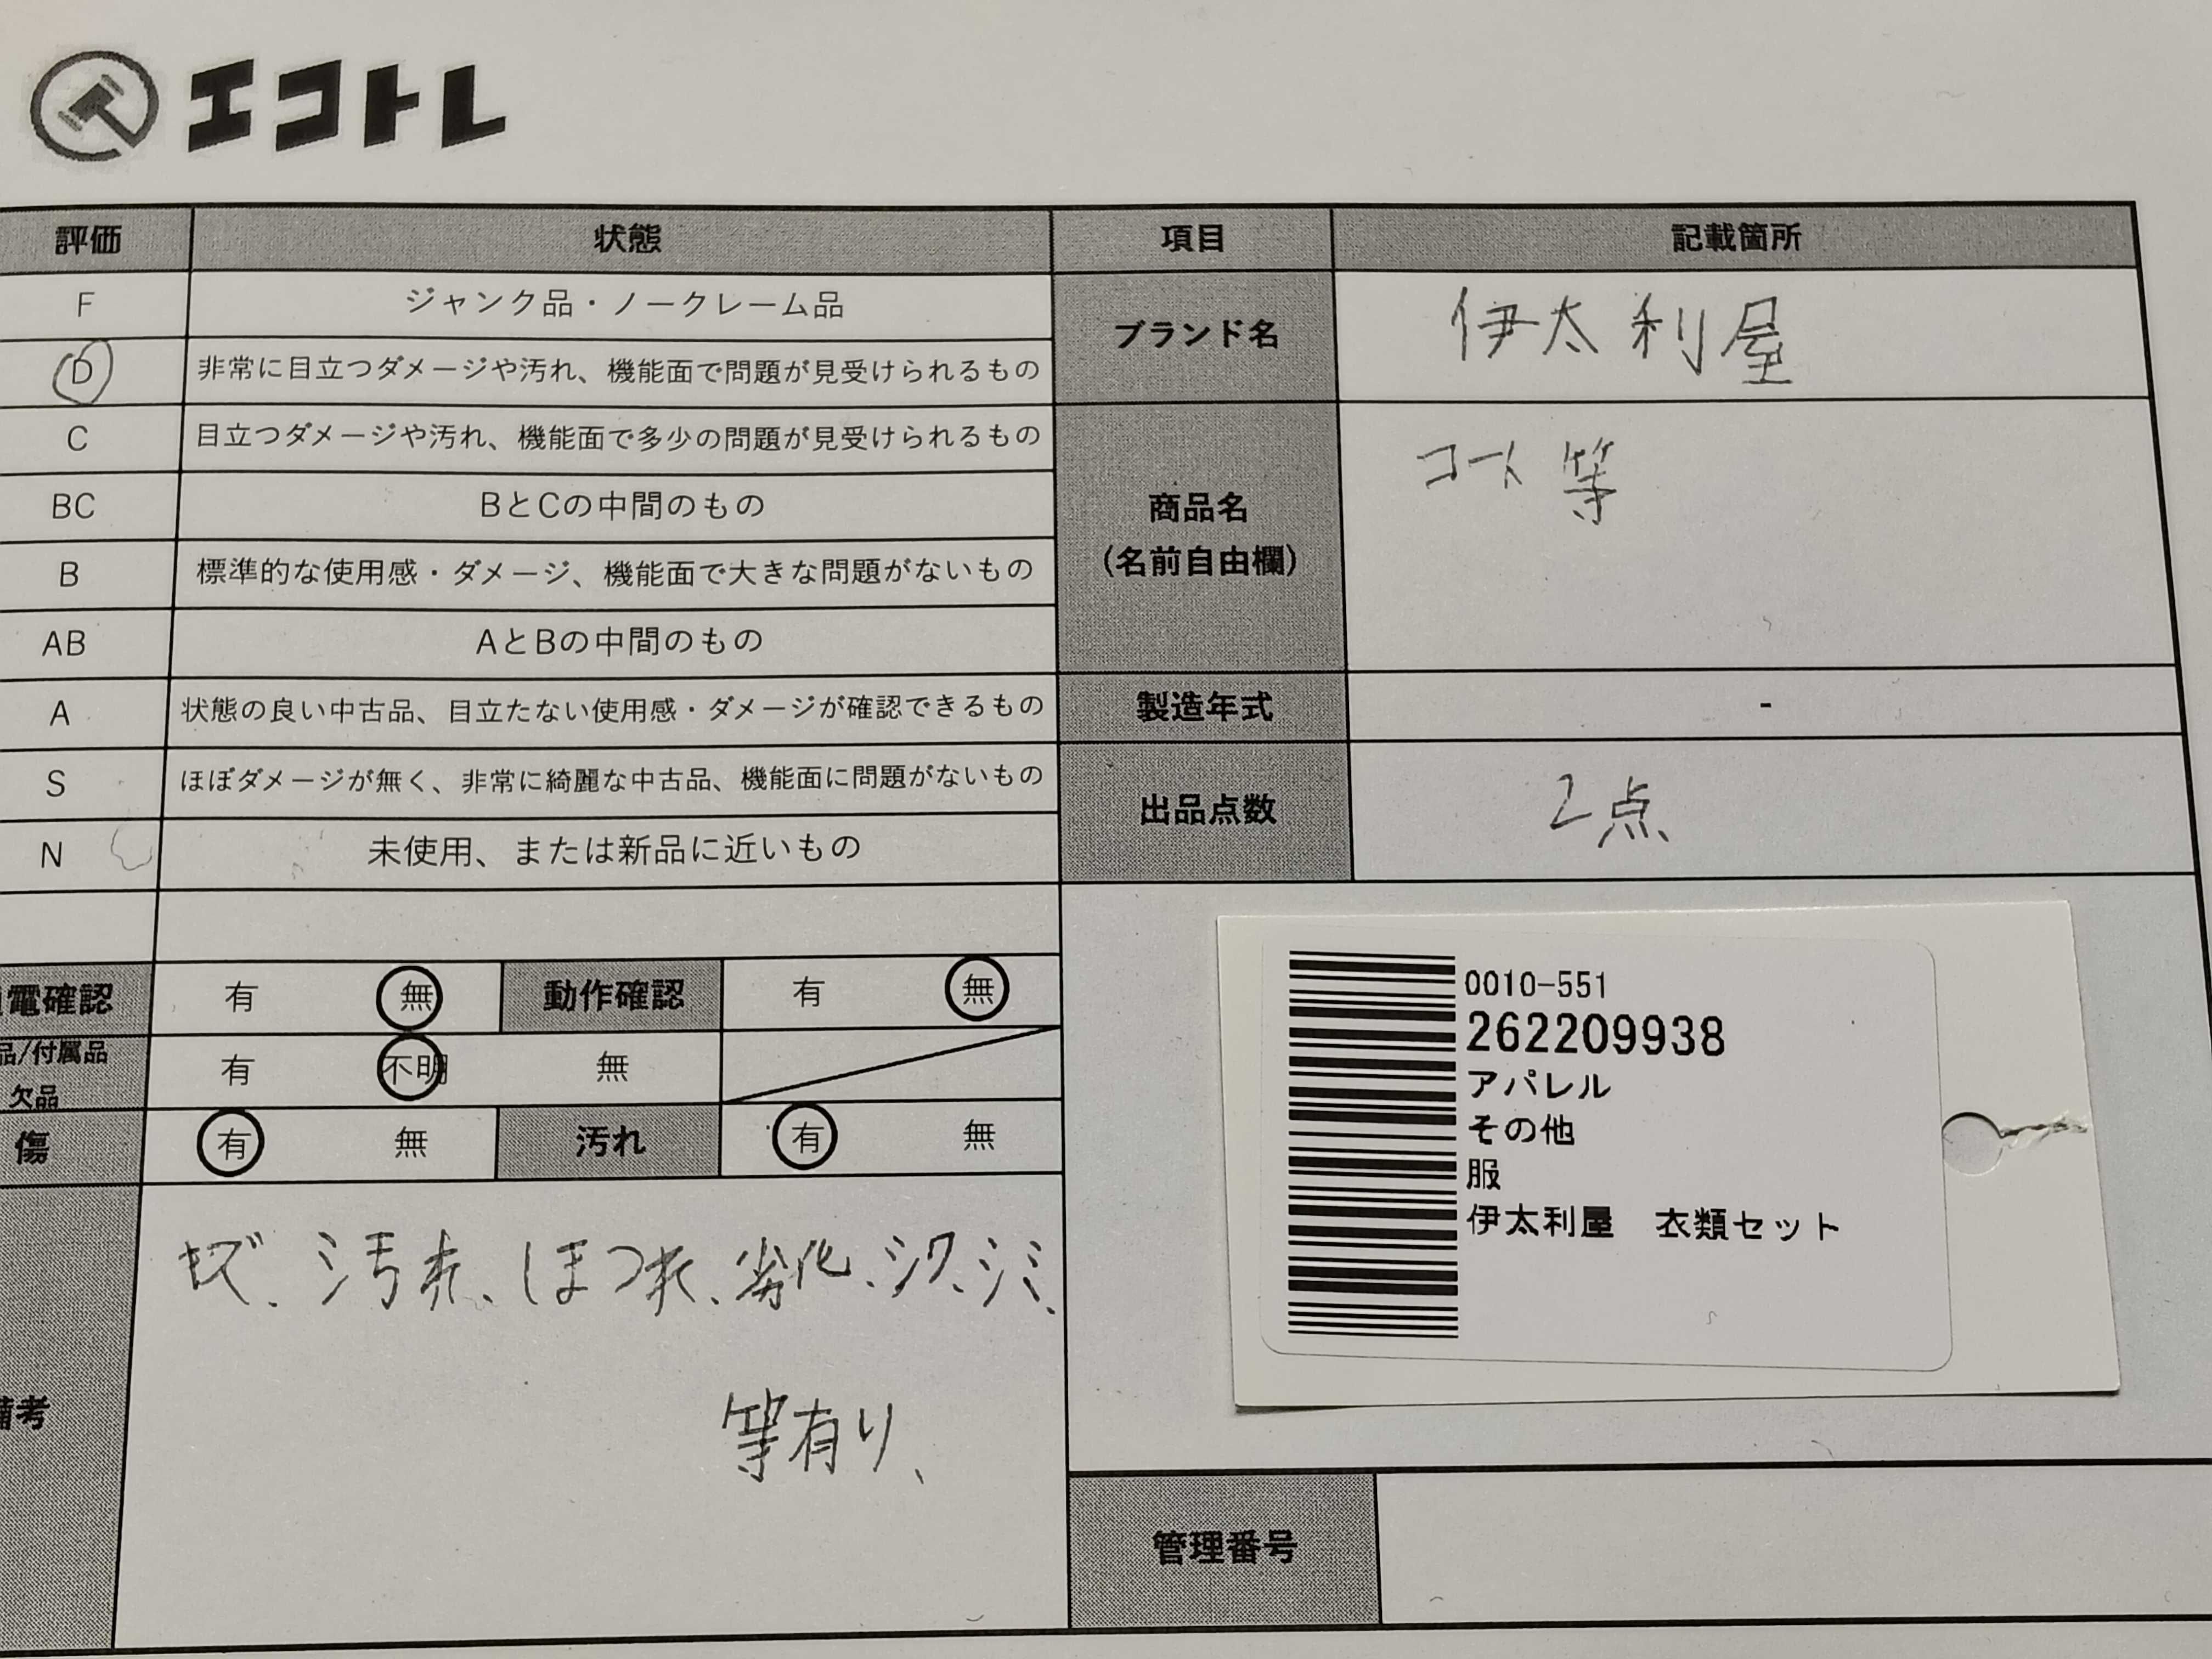 エコトレ
評価 状態 項目 記載箇所
F ジャンク品・ノークレーム品
D 非常に目立つダメージや汚れ、機能面で問題が見受けられるもの
C 目立つダメージや汚れ、機能面で多少の問題が見受けられるもの
BC BとCの中間のもの
B 標準的な使用感・ダメージ、機能面で大きな問題がないもの
AB AとBの中間のもの
A 状態の良い中古品、目立たない使用感・ダメージが確認できるもの
S ほぼダメージが無く、非常に綺麗な中古品、機能面に問題がないもの
N 未使用、または新品に近いもの
ブランド名 伊太利屋
商品名
(名前自由欄)
コート等
製造年式 -
出品点数 2点
電確認 有 無 動作確認 有 無
品/付属品
欠品
有 不明 無
傷 有 無 汚れ 有 無
備考
キズ、汚れ、ほつれ、劣化、シワ、シミ、
等有り、
0010-551
262209938
アパレル
その他
服
伊太利屋 衣類セット
管理番号